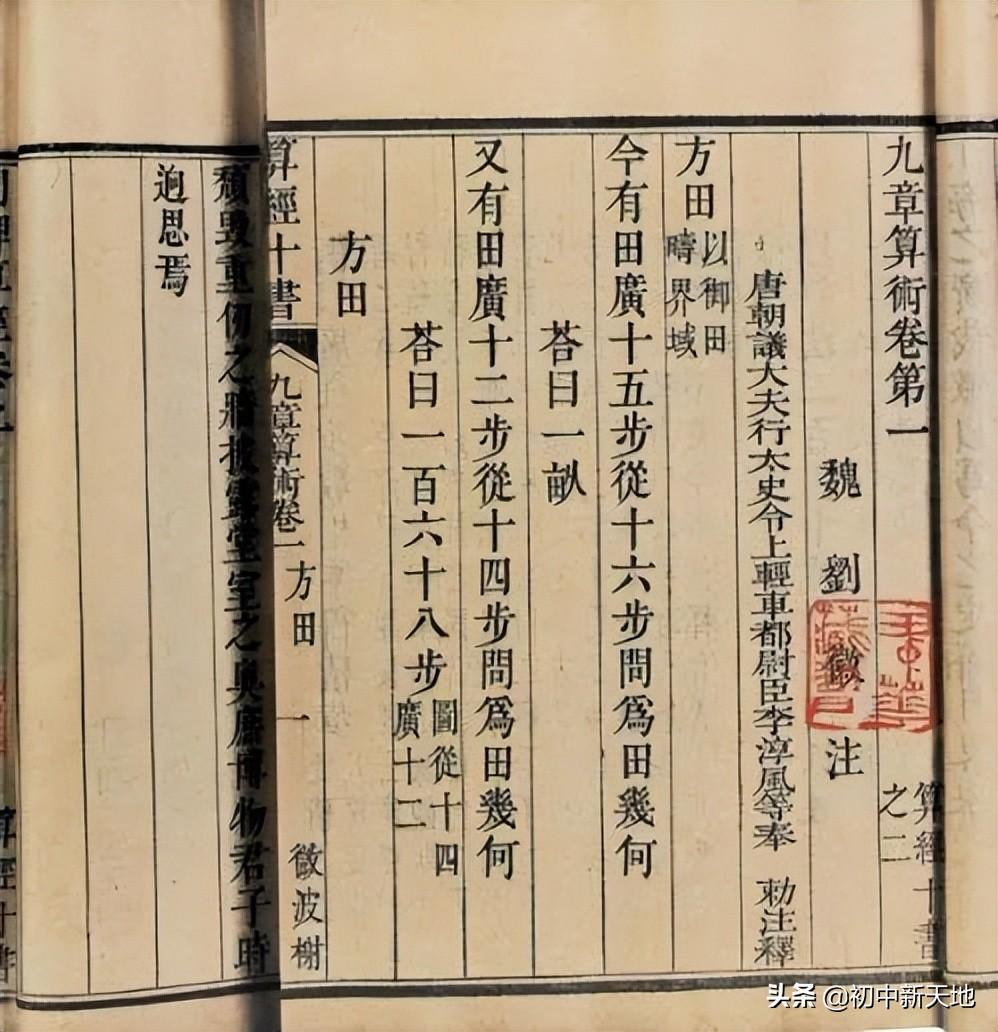 九章算術卷第一
算經十書
之二
魏 劉徽 注
唐朝議大夫行太史令上輕車都尉臣李淳風等奉 勅注釋
方田以御田疇界域
今有田廣十五步從十六步問爲田幾何
荅曰一畝
又有田廣十二步從十四步問爲田幾何
荅曰一百六十八步圖從十四廣十二
方田
算經十書
九章算術卷一 方田
一
微波榭
頹毀重仞之牆披露堂室之奧庶博物君子時
迥思焉
算經十書
头条 @初中新天地